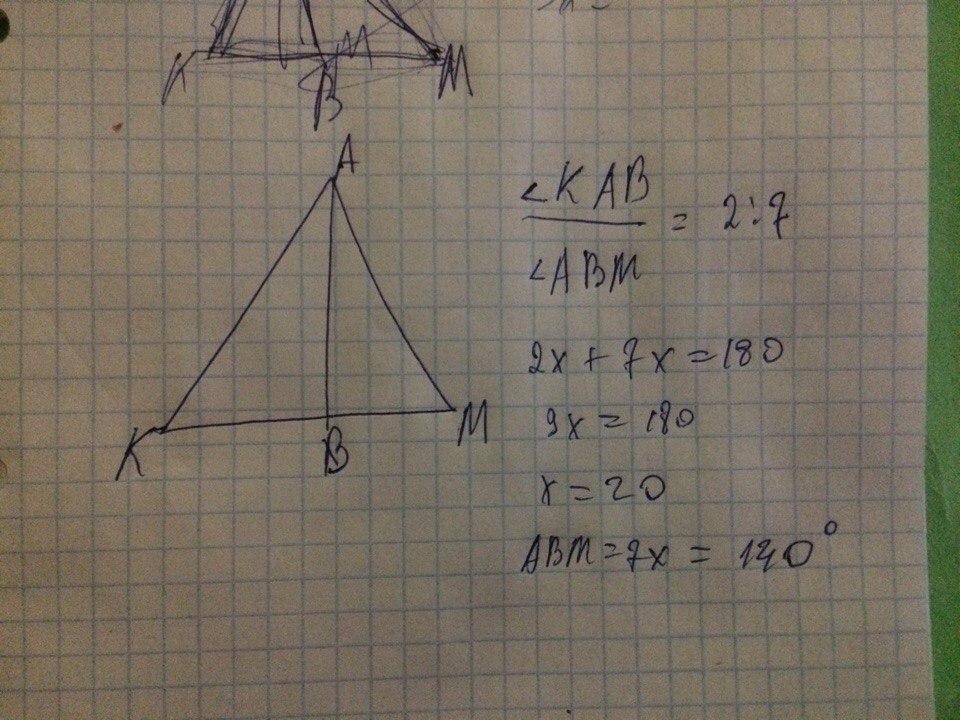 K B M M
A
K B M
<KAB
<ABM = 2:7
2x + 7x = 180
9x = 180
x = 20
ABM = 7x = 140°